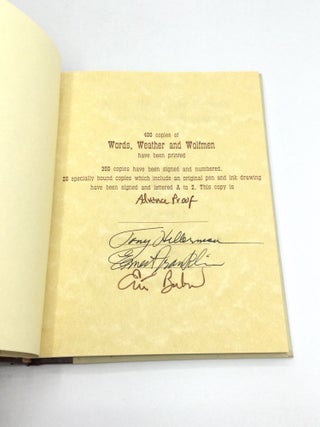 400 copies of
Words, Weather and Wolfmen
have been printed
350 copies have been signed and numbered.
26 specially bound copies which include an original pen and ink drawing
have been signed and lettered A to Z. This copy is
Advance Proof
Tony Hillerman
Ernest Franklin